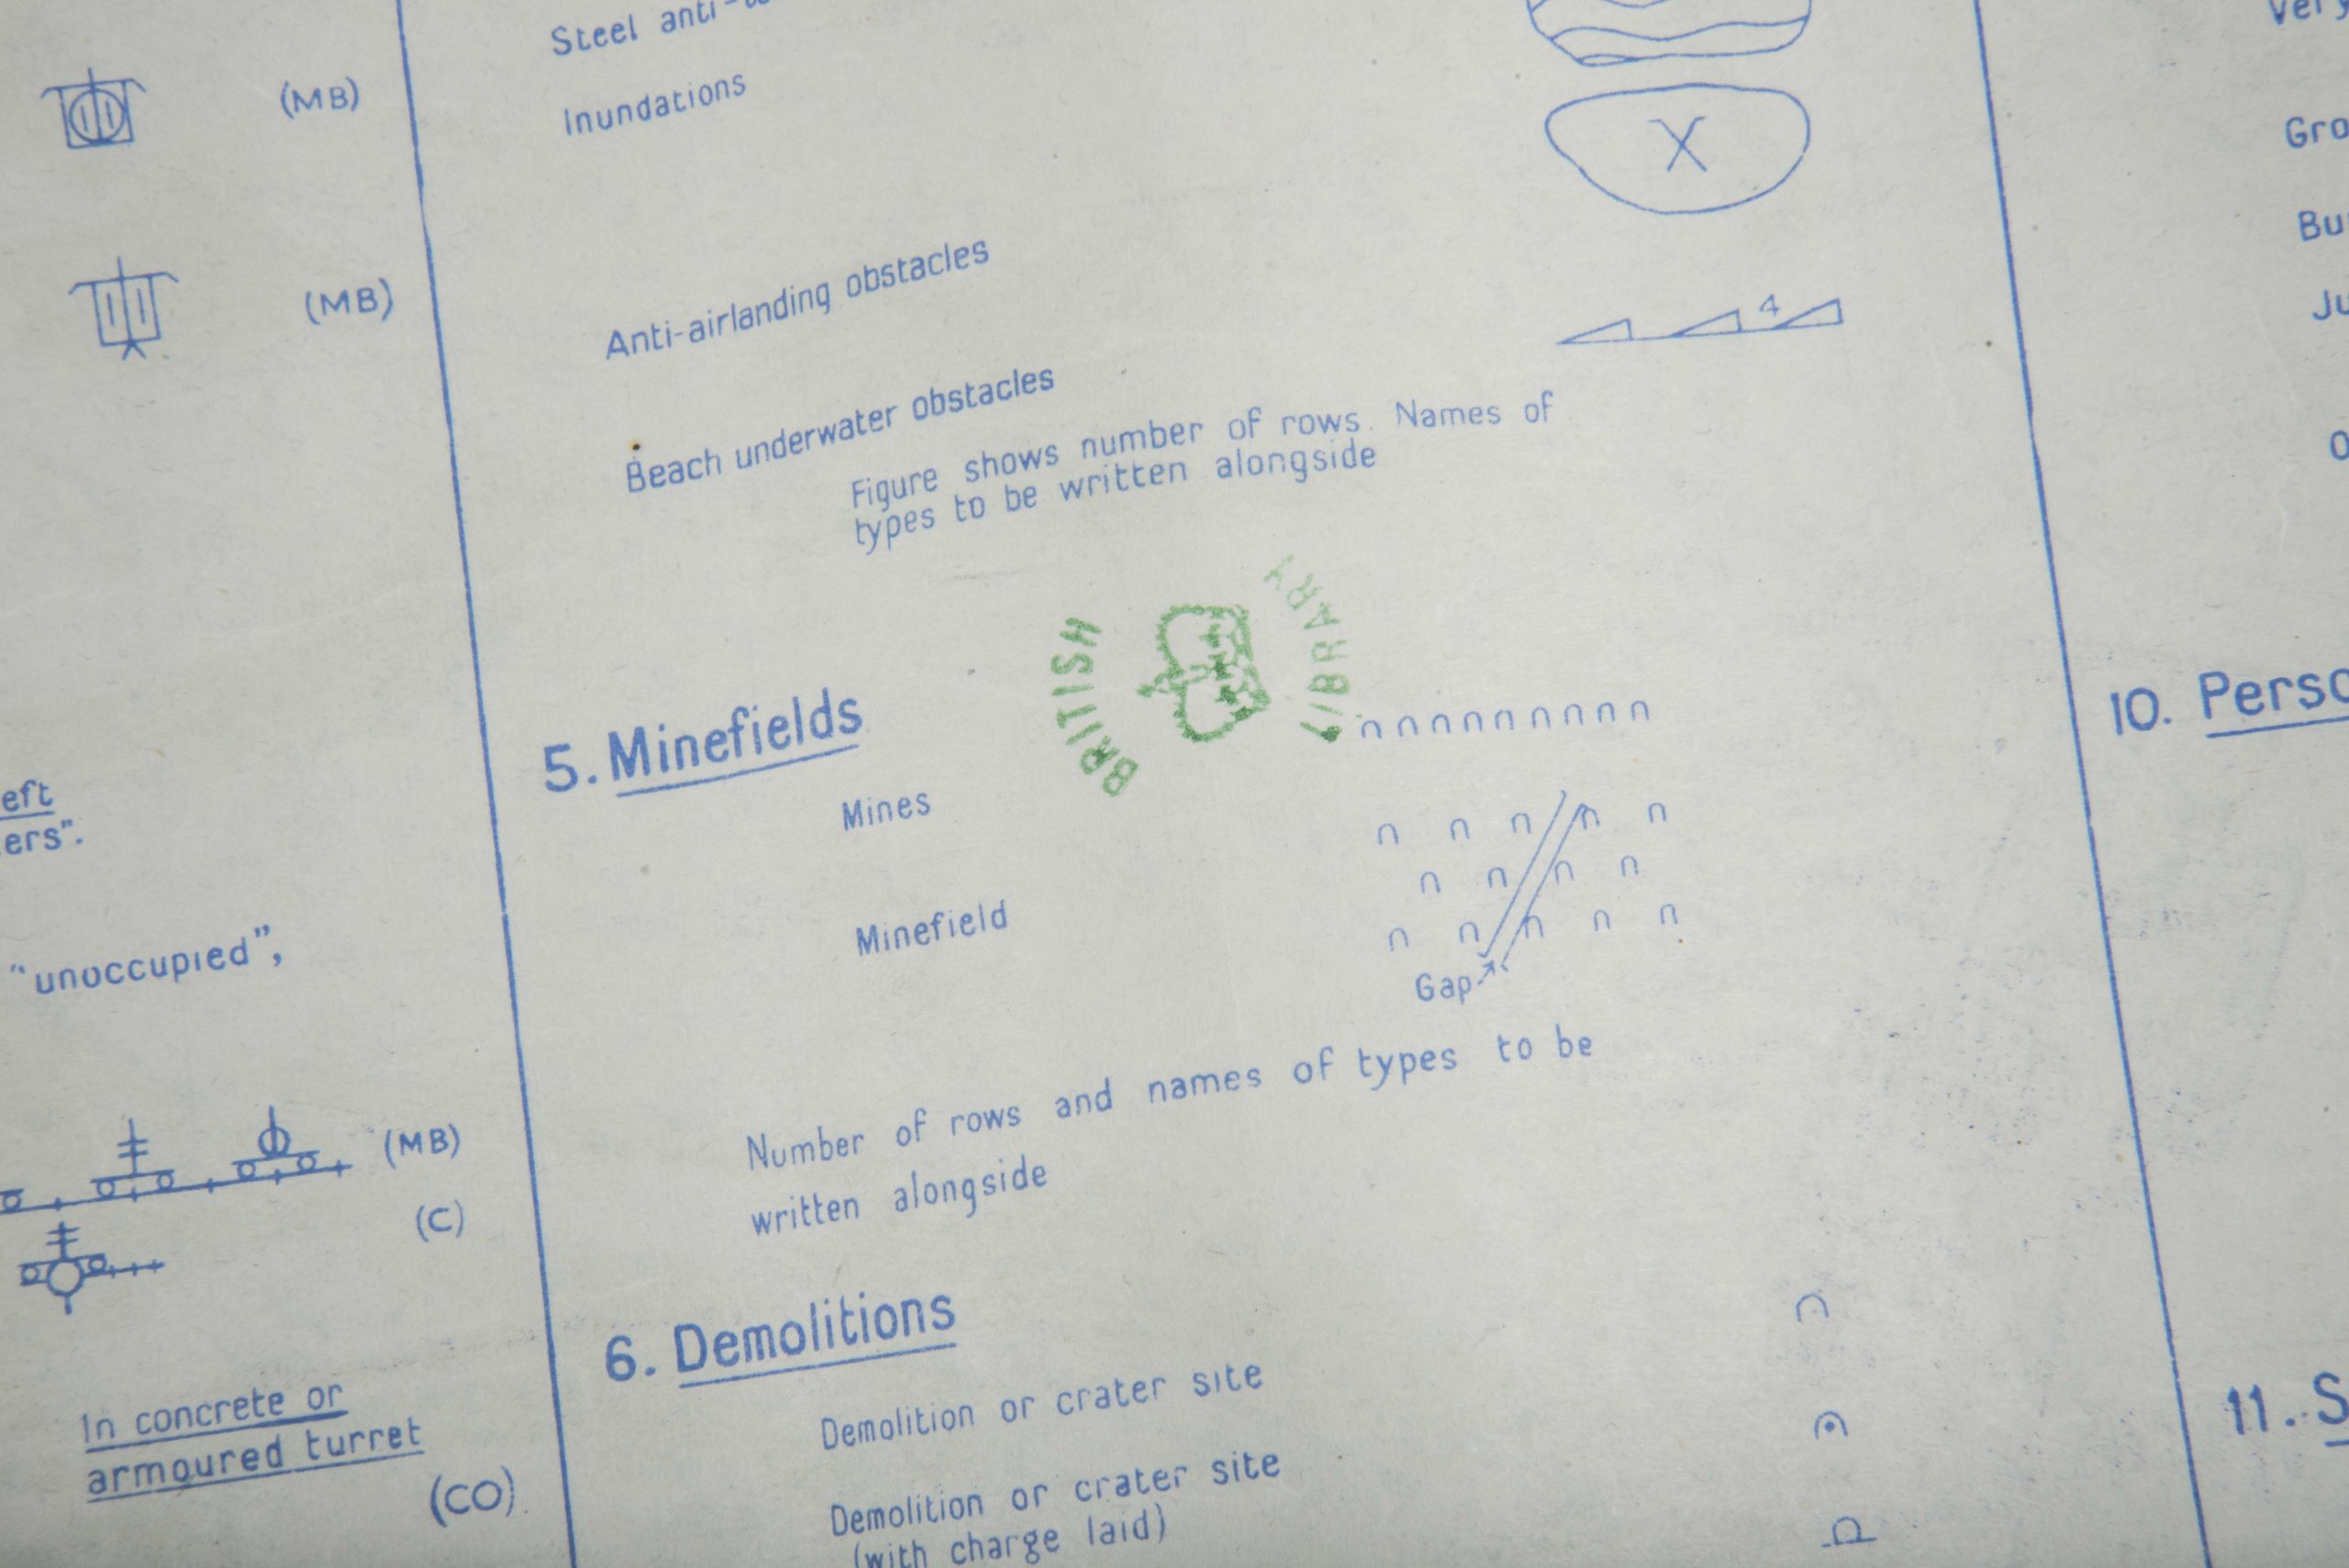 (MB)
(MB)
eft
ers".
"unoccupied",
(MB)
(C)
In concrete or
armoured turret
(CO)
Steel anti-
Inundations
X
Anti-airlanding obstacles
4
Beach underwater obstacles
Figure shows number of rows. Names of
types to be written alongside
BRITISH LIBRARY
5. Minefields
Mines
Minefield
Gap
Number of rows and names of types to be
written alongside
6. Demolitions
Demolition or crater site
Demolition or crater site
(with charge laid)
Very
Gro
Bu
Ju
10. Perso
11. S